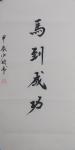 馬到成功
甲辰